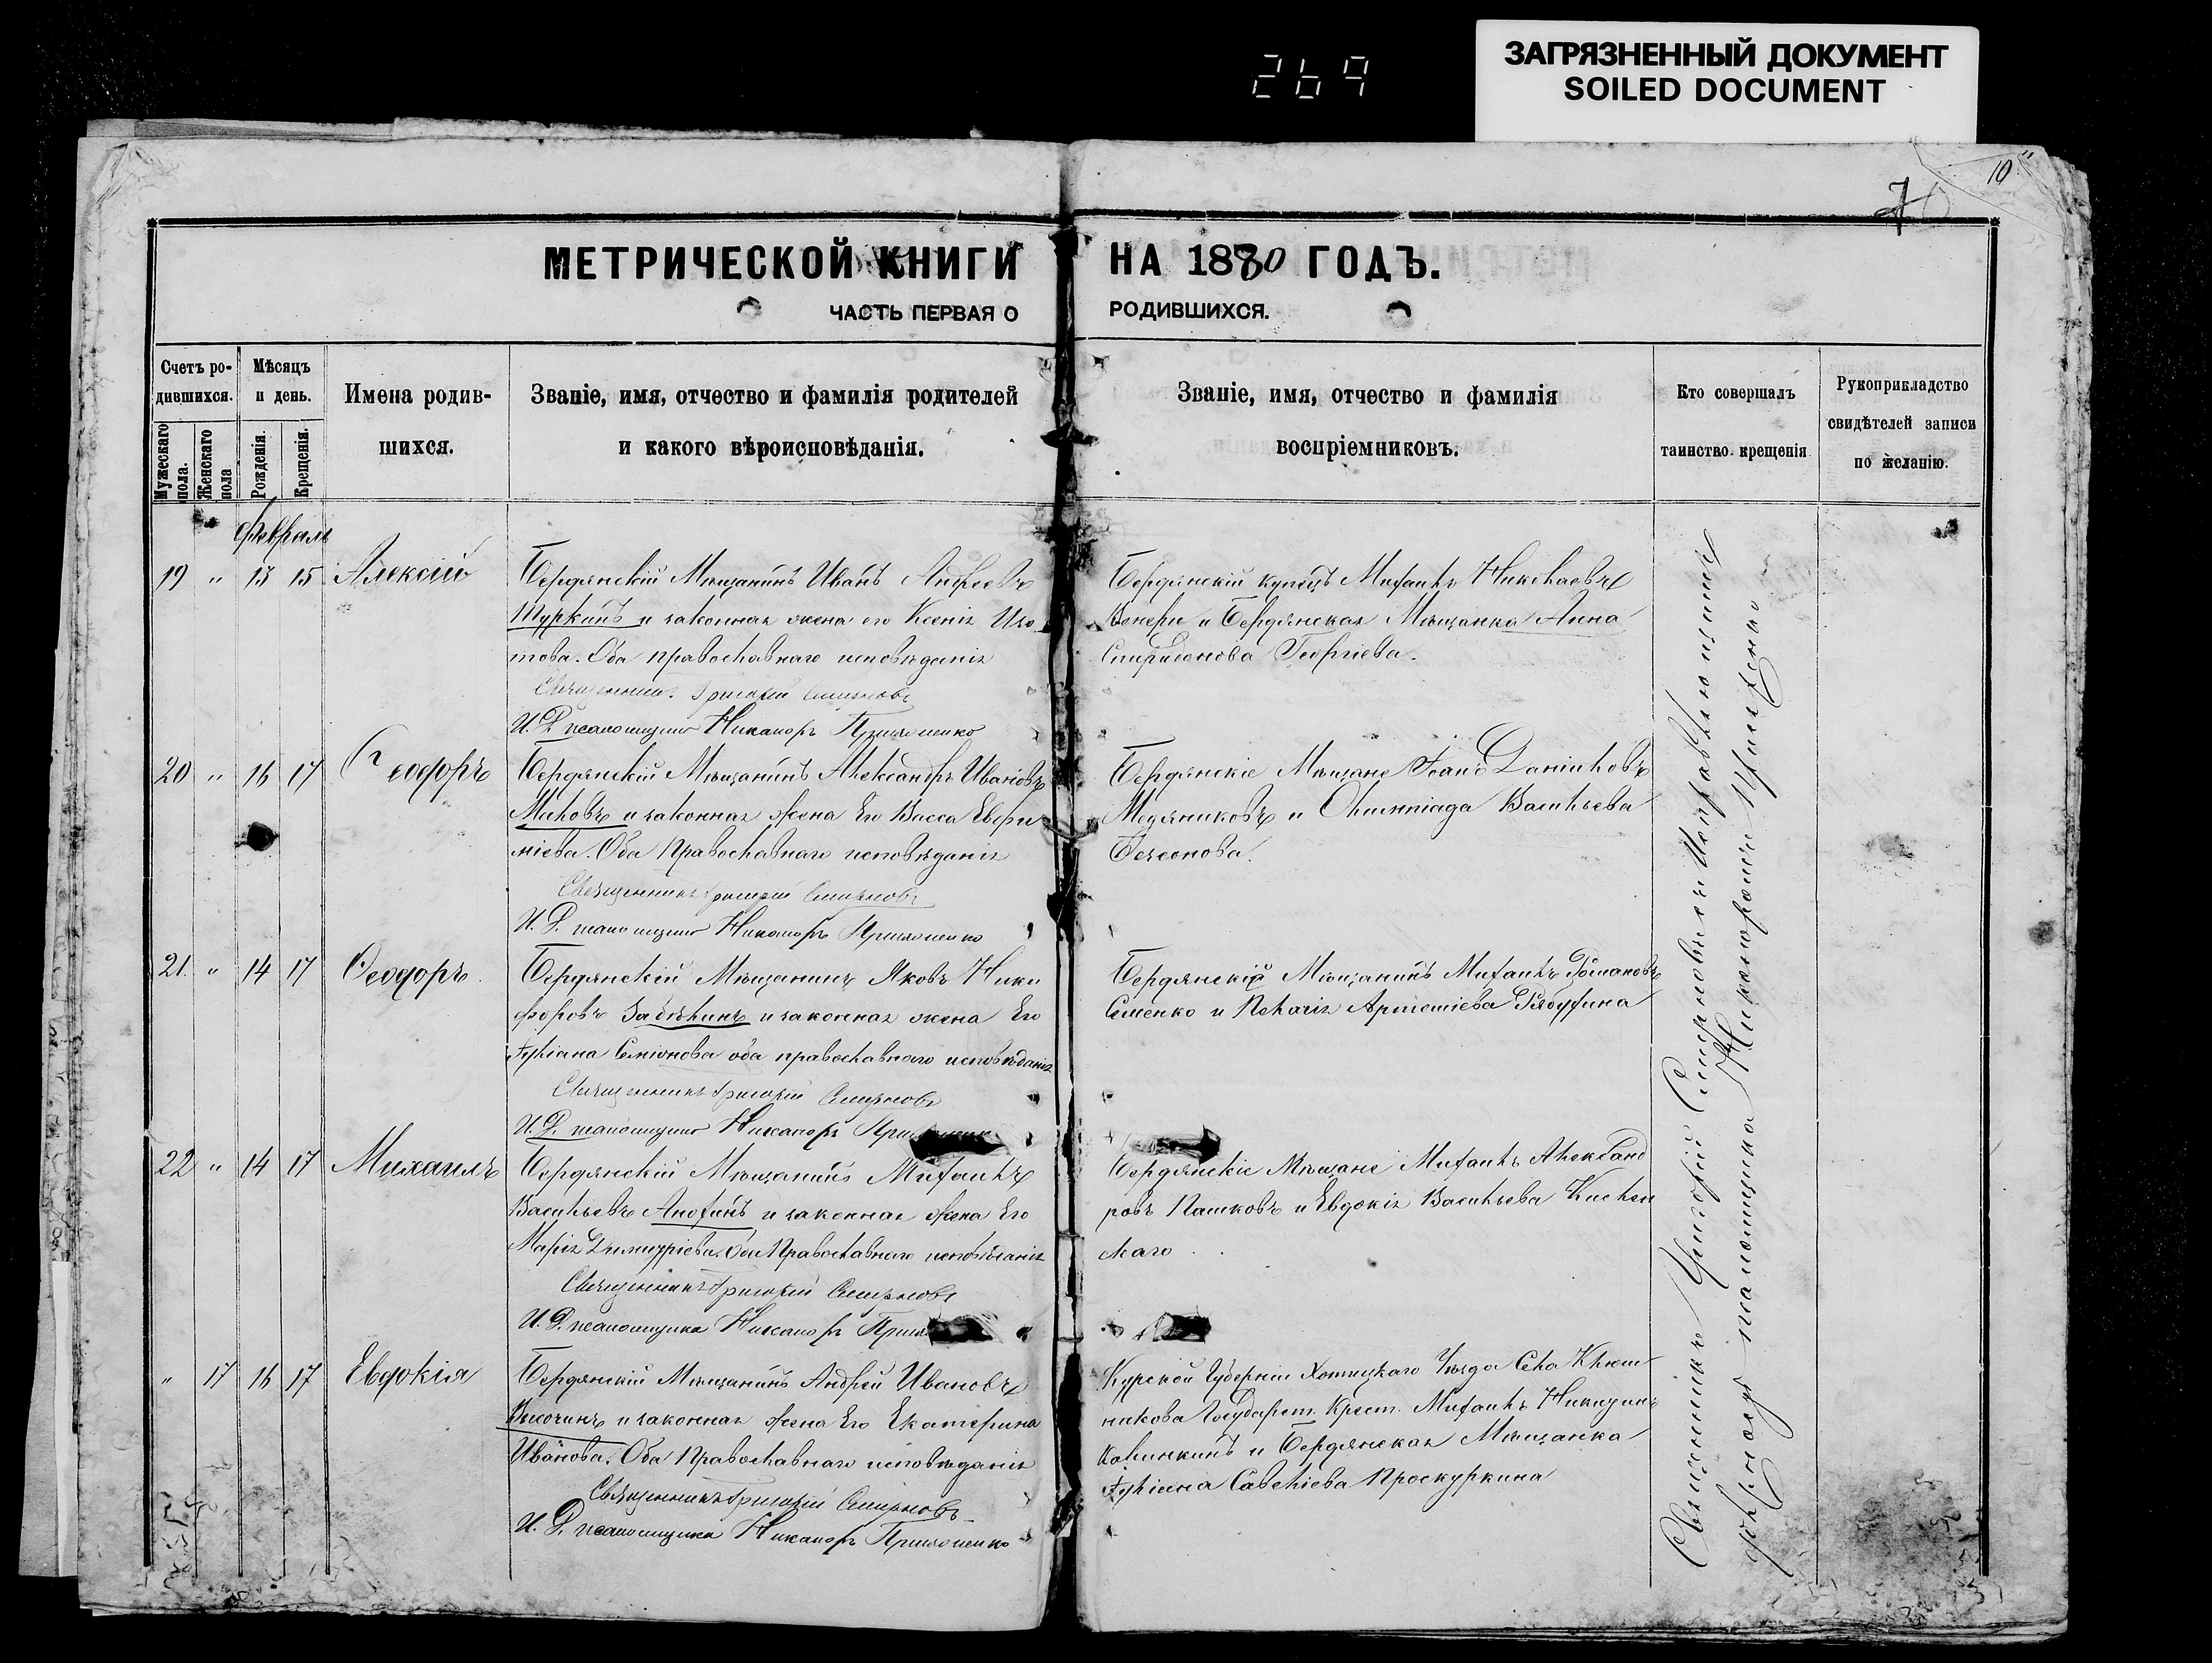 264
ЗАГРЯЗНЕННЫЙ ДОКУМЕНТ
SOILED DOCUMENT
10
МЕТРИЧЕСКОЙ КНИГИ НА 1880 ГОДЪ.
ЧАСТЬ ПЕРВАЯ О РОДИВШИХСЯ.
Счетъ ро-
дившихся.
Мужескаго пола.
Женскаго пола
Мѣсяцъ
и день.
Рожденія.
Крещенія.
Имена родив-
шихся.
Званіе, имя, отчество и фамилія родителей
и какого вѣроисповѣданія.
Званіе, имя, отчество и фамилія
воспріемниковъ.
Кто совершалъ
таинство крещенія
Рукоприкладство
свидѣтелей записи
по желанію.
февраль
19 " 13 15 Алексій
Бердянскій Мѣщанинъ Иванъ Андреевъ
Шуркинъ и законная жена его Ксенія Изо
това. Оба православнаго исповѣданія
Священникъ Григорій Смирновъ
И. Д. псаломщика Никаноръ
Бердянскій купецъ Михаилъ Николаевъ
Венери и Бердянская Мѣщанка Анна
Спиридонова Георгіева.
20 " 16 17 Ѳеодоръ
Бердянскій Мѣщанинъ Александръ Ивановъ
Маховъ и законная жена Его Васса Евфи
міева. Оба Православнаго исповѣданія
Священникъ Григорій Смирновъ
И. Д. псаломщика Никаноръ
Бердянскіе Мѣщане Іоанъ Даніиловъ
Медяниковъ и Олимпіада Васильева
21. " 14 17 Ѳеодоръ
Бердянскій Мѣщанинъ Яковъ Ники
форовъ Забѣлинъ и законная жена Его
Іуліана Симіонова оба православнаго исповѣданія
Священникъ Григорій Смирновъ
И. Д. псаломщика Никаноръ
Бердянскій Мѣщанинъ Михаилъ Романовъ
Семенко и Пелагія Артеміева Рябухина
22 " 14 17 Михаилъ
Бердянскій Мѣщанинъ Михаилъ
Васильевъ Анохинъ и законная жена Его
Марія Димитріева. Оба Православнаго исповѣданія
Священникъ Григорій Смирновъ
И. Д. псаломщика Никаноръ
Бердянскіе Мѣщане Михаилъ Александ
ровъ Пашковъ и Евдокія Васильева Кисел
скаго
" 17 16 17 Евдокія
Бердянскій Мѣщанинъ Андрей Ивановъ
Височинъ и законная жена Его Екатерина
Иванова. Оба Православнаго исповѣданія
Священникъ Григорій Смирновъ
И. Д. псаломщика Никаноръ
Курской Губерніи Уѣзда Села Ключ
никова Государст. Крест. Михаилъ Никитинъ
Калинкинъ и Бердянская Мѣщанка
Іуліана Савеліева Проскуркина
Священникъ Григорій Смирновъ и Исправляющій
должность псаломщика Никаноръ